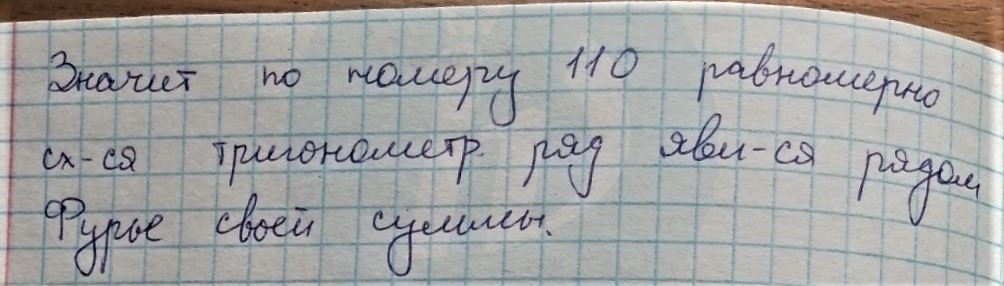 Значит по номеру 110 равномерно
сх-ся тригонометр. ряд явл-ся рядом
Фурье своей суммы.